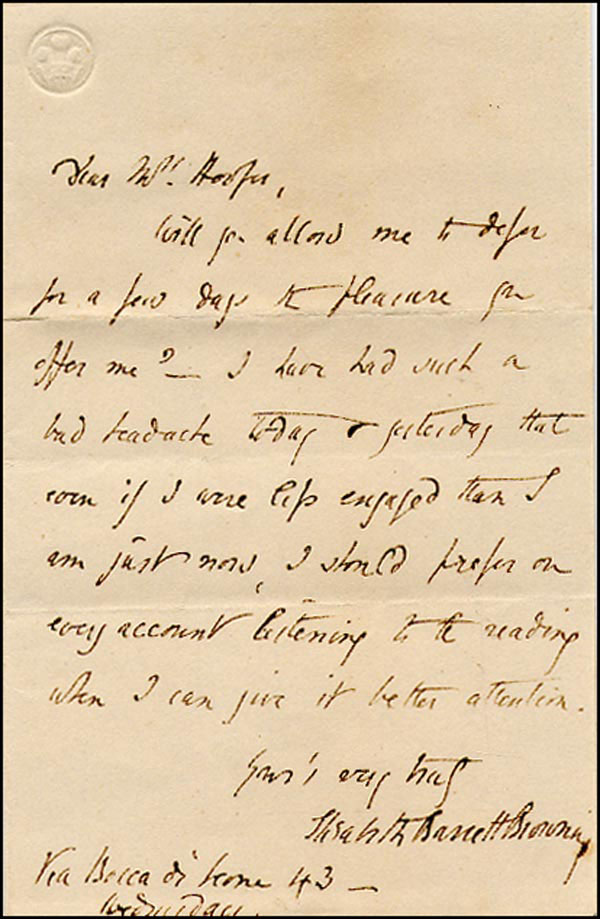 Dear Mrs. Hooper,
Will you allow me to defer
for a few days the pleasure you
offer me? — I have had such a
bad headache today & yesterday that
even if I were less engaged than I
am just now, I should prefer on
every account listening to the reading
when I can give it better attention.
Your's very truly
Elizabeth Barrett Browning
Via Bocca di Leone 43 —
Wednesday.